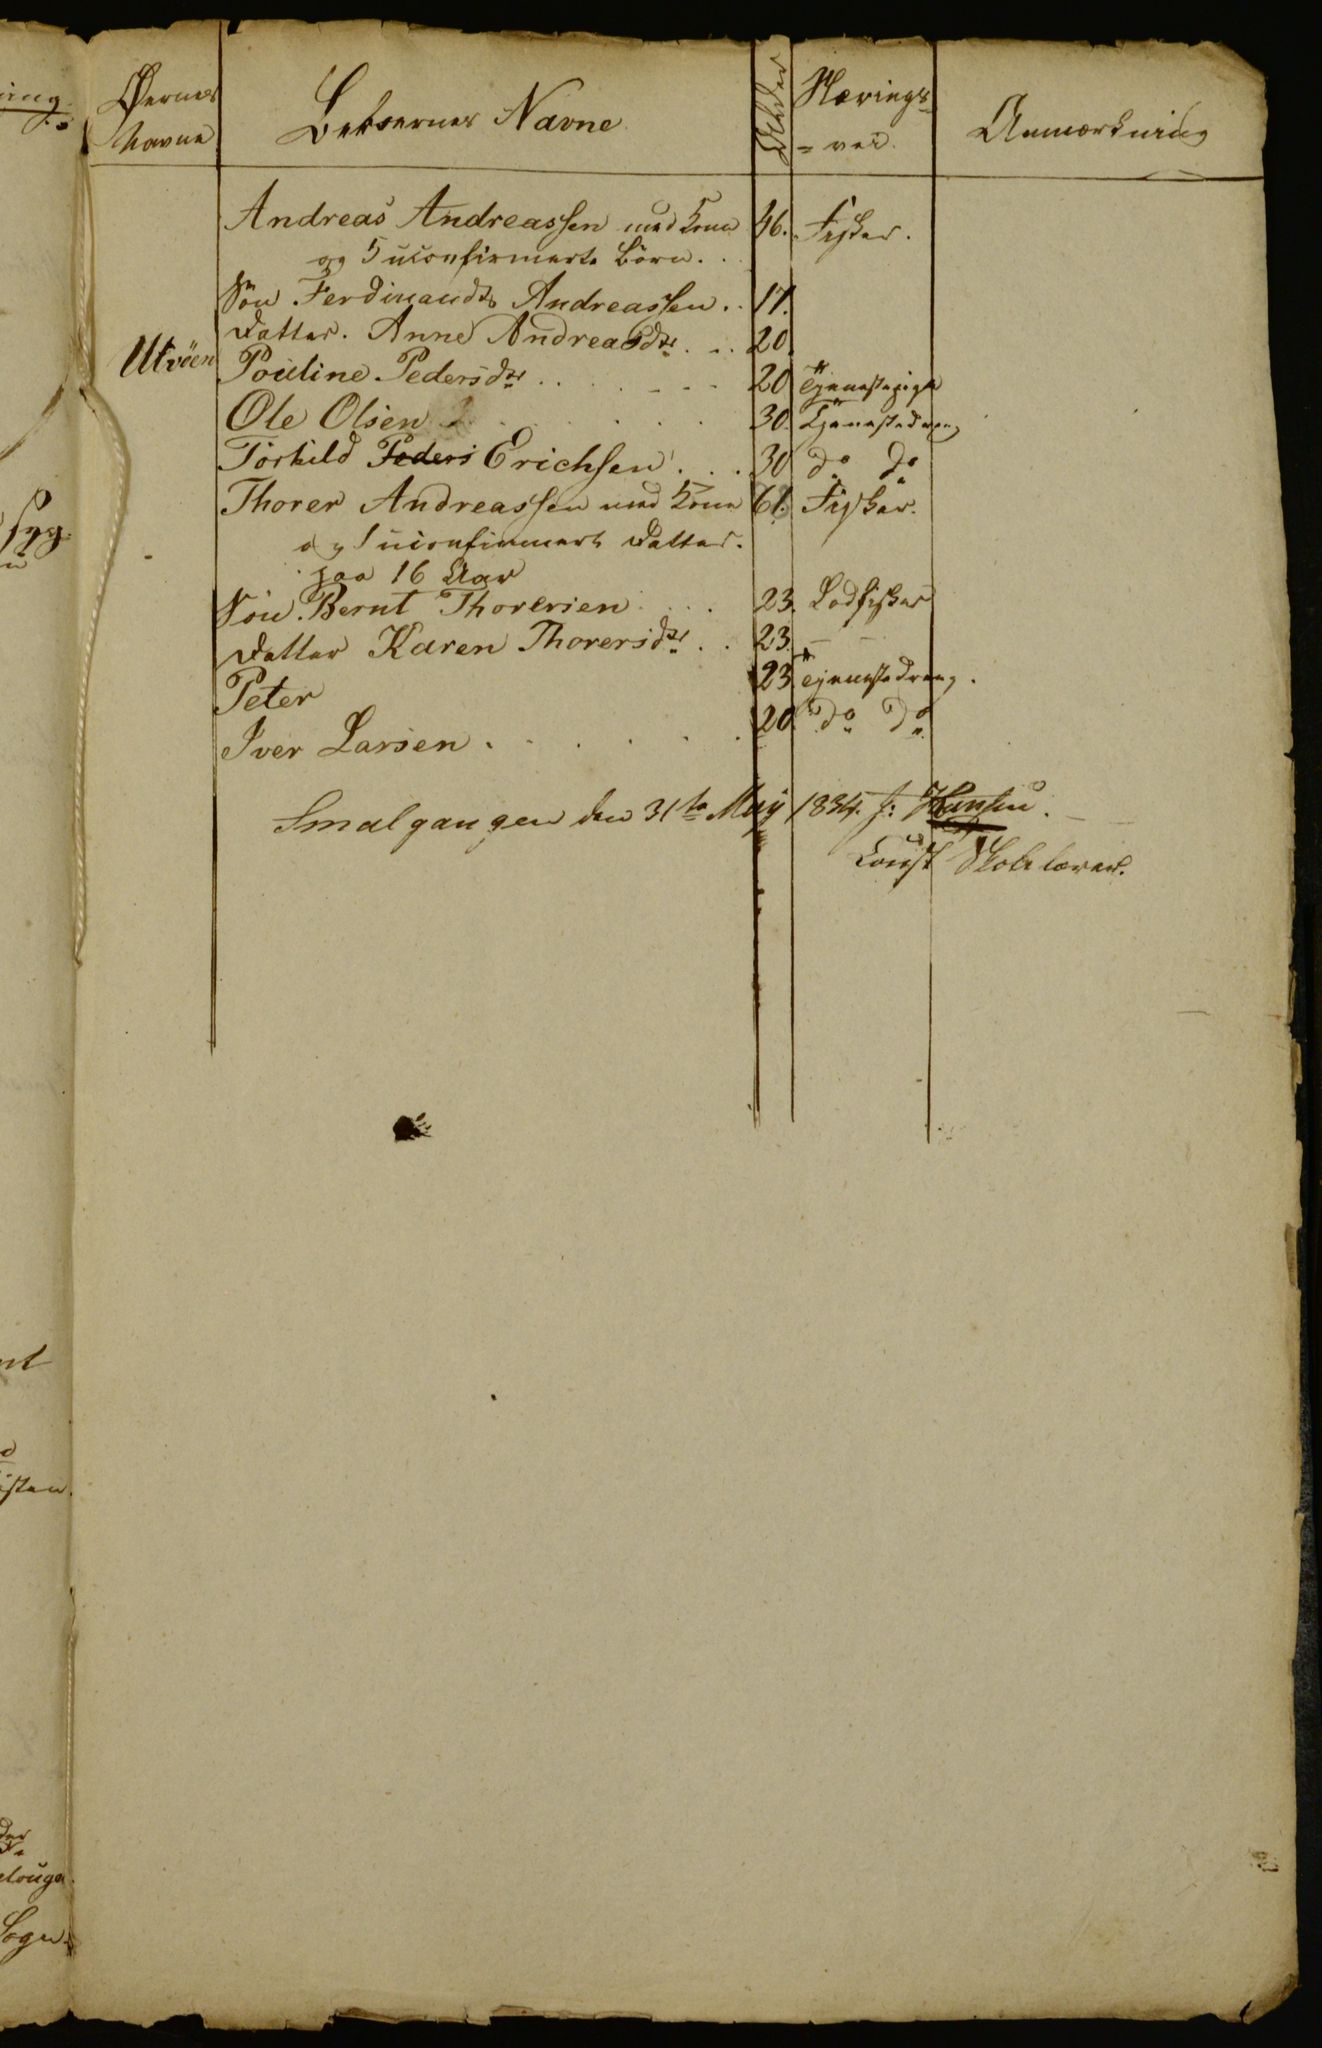 Øernes
Navne
Beboernes Navne
Alder
Nærings-
=vei.
Anmærkning
Andreas Andreassen med Kone 46. Fisker.
og 5 uconfirmerte Börn. . .
Sön Ferdinands Andreassen . . 17.
Datter. Anne Andreasdtr . . . 20.
Utvöen
Pouline Pedersdtr . . . . . . . 20 Tjenestepige
Ole Olsen . . . . . . 30. Tjenestedreng
Torkild Peders Erichsen . . . 30 do do
Thorer Andreassen med Kone 61. Fisker.
og 1 uconfirmert Datter.
paa 16 Aar
Sön. Bernt Thorersen . . . . 23. Lodfisker
Datter Karen Thorersdtr . . 23. – –
Peter 23 Tjenestedreng.
Iver Larsen . . . . . . 20 do do
Smalgangen den 31te May 1834. J: Hansen.
Const Skolelærer.
ing
syg
nt
isten.
der
Sogn.